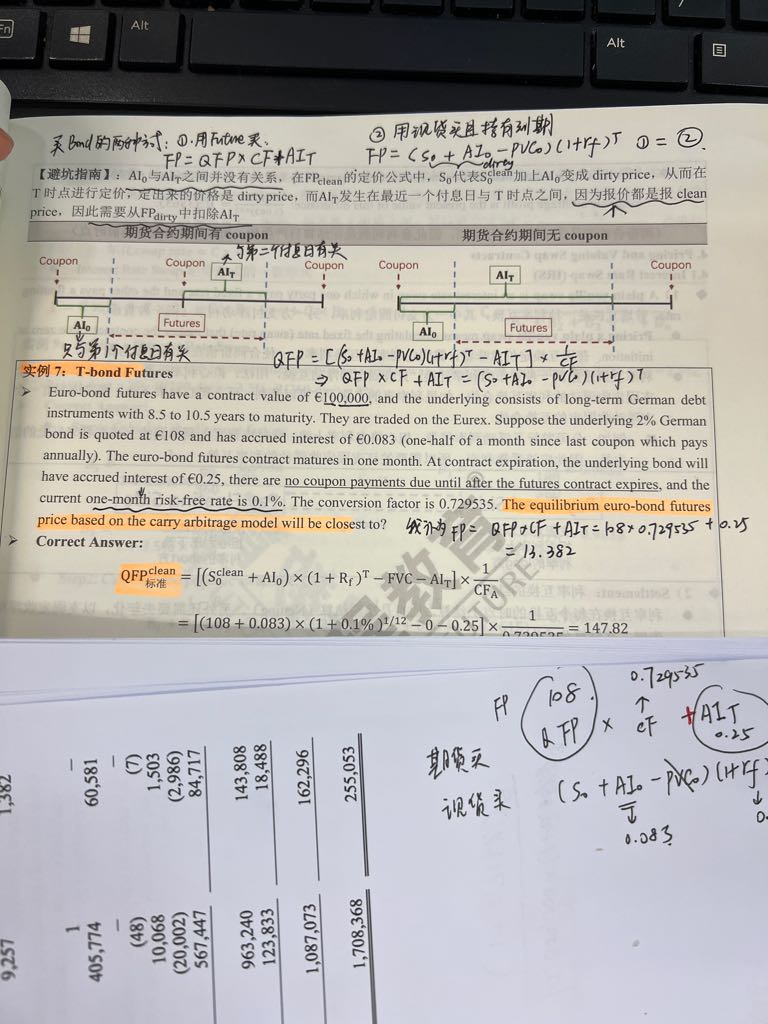 Fn
Alt
Alt
买Bond的两种方式：①.用Future买.
FP=QFP×CF+AIT
② 用现货买且持有到期
FP=(S0+AI0-PVC0)(1+rf)^T ①=②.
dirty
【避坑指南】：AI0与AIT之间并没有关系，在FPclean的定价公式中，S0代表S0^clean加上AI0变成 dirty price，从而在
T 时点进行定价，定出来的价格是 dirty price，而AIT发生在最近一个付息日与 T 时点之间，因为报价都是报 clean
price，因此需要从FPdirty中扣除AIT
期货合约期间有 coupon
期货合约期间无 coupon
与第二个付息日有关
Coupon
Coupon
Coupon
Coupon
Coupon
AIT
AIT
AI0
Futures
AI0
Futures
只与第1个付息日有关
QFP=[(S0+AI0-PVC0)(1+rf)^T-AIT]×1/CF
⇒ QFP×CF+AIT=(S0+AI0-PVC0)(1+rf)^T
实例 7：T-bond Futures
➢ Euro-bond futures have a contract value of €100,000, and the underlying consists of long-term German debt
instruments with 8.5 to 10.5 years to maturity. They are traded on the Eurex. Suppose the underlying 2% German
bond is quoted at €108 and has accrued interest of €0.083 (one-half of a month since last coupon which pays
annually). The euro-bond futures contract matures in one month. At contract expiration, the underlying bond will
have accrued interest of €0.25, there are no coupon payments due until after the futures contract expires, and the
current one-month risk-free rate is 0.1%. The conversion factor is 0.729535. The equilibrium euro-bond futures
price based on the carry arbitrage model will be closest to?
我认为FP= QFP×CF+AIT=108×0.729535+0.25
=13.382
➢ Correct Answer:
QFP标准^clean = [(S0^clean + AI0) × (1 + Rf)^T − FVC − AIT] × 1/CFA
= [(108 + 0.083) × (1 + 0.1%)^1/12 − 0 − 0.25] × 1/0.729535 = 147.82
0.729535
FP 108 ↑
QFP × CF +AIT
0.25
期货买
现货买 (S0+AI0-PVC0)(1+rf)
0.083
1,382
–
60,581
–
(7)
1,503
(2,986)
84,717
143,808
18,488
162,296
255,053
9,257
1
405,774
–
(48)
10,068
(20,002)
567,447
963,240
123,833
1,087,073
1,708,368